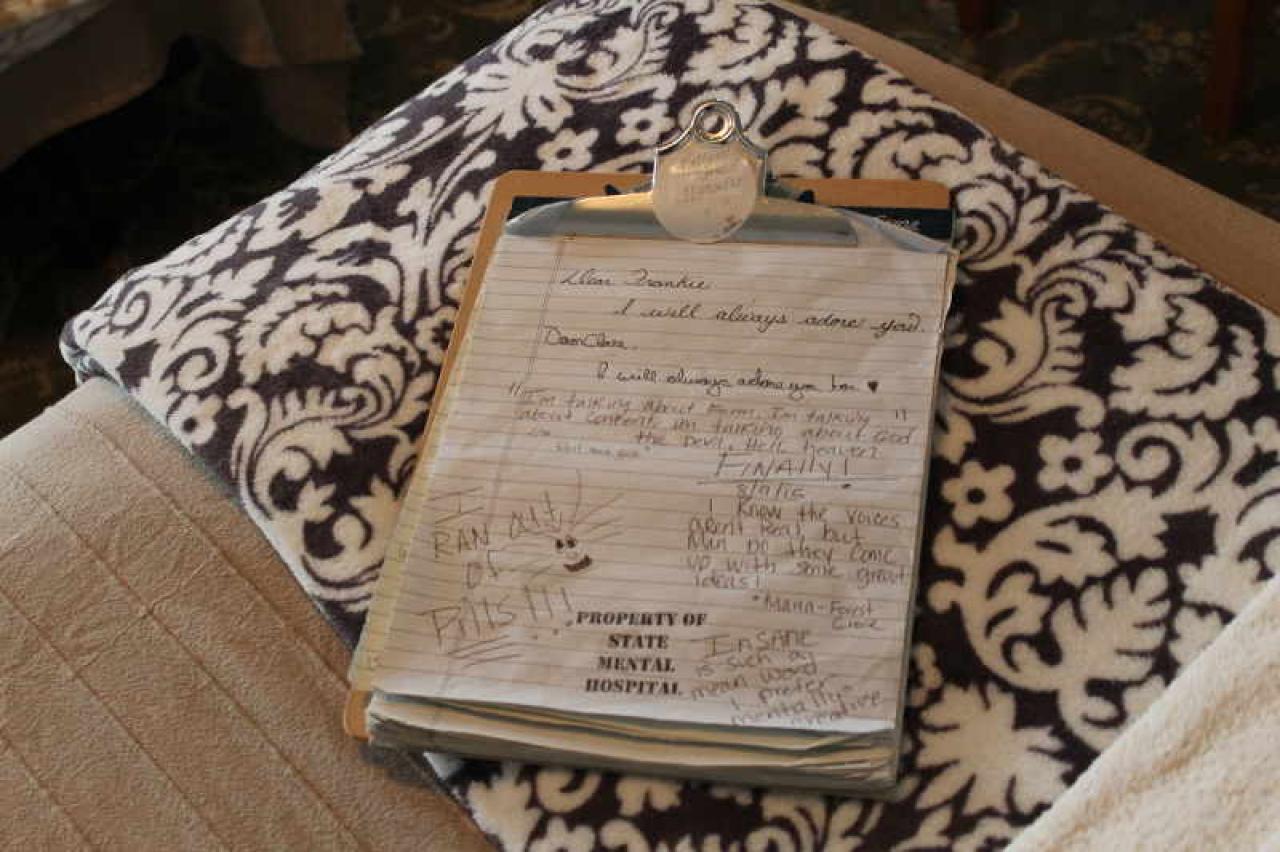 Dear Frankie
I will always adore you.
Dear Clare.
I will always adore you too ♥
"I'm talking about Form. I'm talking "
about content. im talking about God
the Devil. Hell, heaven?
FINALLY!
8/9/16
I
RAN OUT
OF
Pills!!!
I know the voices
aren't real, but
Man do they come
up with some great
ideas!
*Maria-Forest
PROPERTY OF
STATE
MENTAL
HOSPITAL
INSANE
is such a
mean word
I prefer
mentally
creative